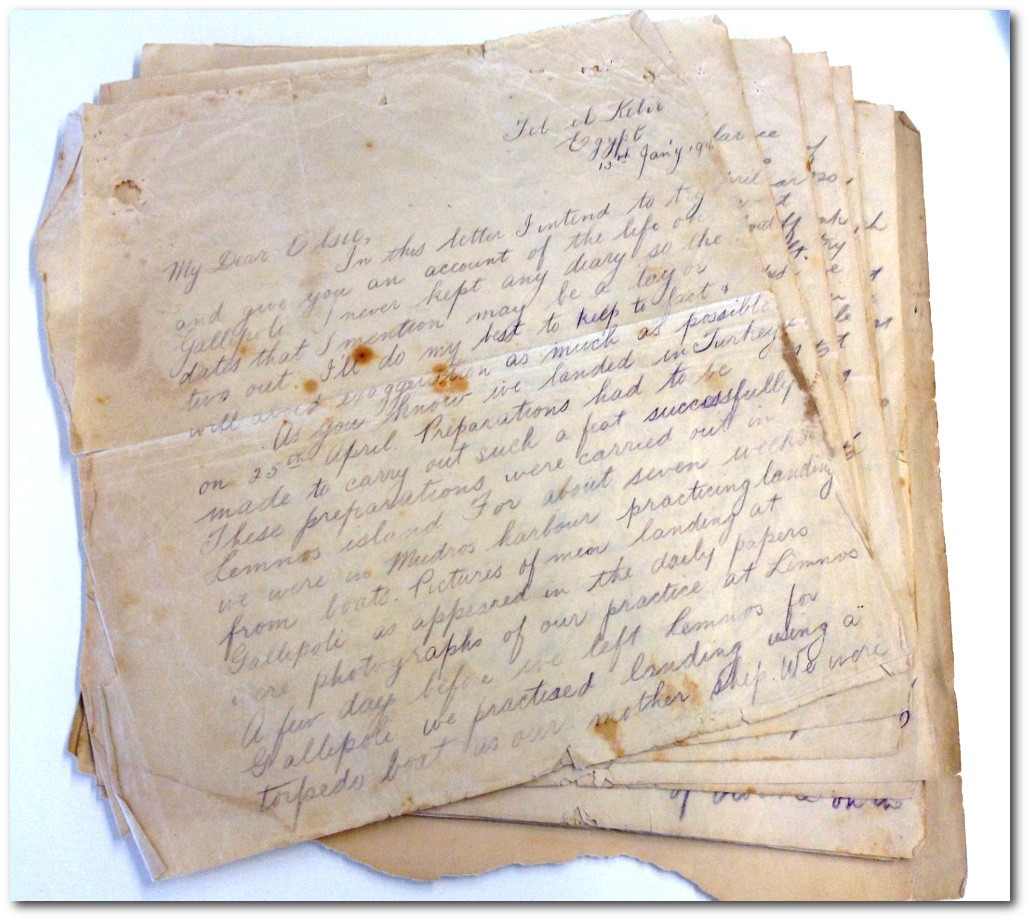 Tel el Kebir
Egypt
13th Jan'y 191
My Dear Elsie,
In this letter I intend to try
and give you an account of the life on
Gallipoli I never kept any diary so the
dates that I mention may be a day or
two out. I'll do my best to keep to fact &
will avoid exaggeration as much as possible
As you know we landed in Turkey
on 25th April. Preparations had to be
made to carry out such a feat successfully
These preparations were carried out in
Lemnos island For about seven weeks
we were in Mudros harbour practicing landing
from boats. Pictures of men landing at
Gallipoli as appeared in the daily papers
were photographs of our practice at Lemnos
A few days before we left Lemnos for
Gallipoli we practised landing using a
torpedo boat as our mother ship. We were
on the